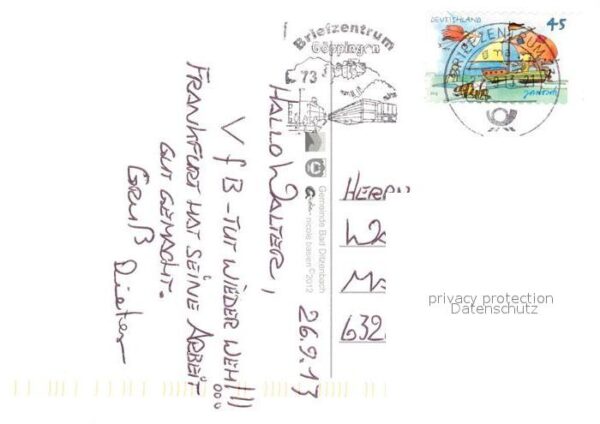 DEUTSCHLAND 45
BRIEFZENTRUM
Briefzentrum
Göppingen
73
HALLO WALTER, 26.9.13
VfB - TUT WIEDER WEH!!! ...
FRANKFURT HAT SEINE ARBEIT
GUT GEMACHT.
GRUß
Dieter
Gemeinde Bad Ditzenbach
nicole basien©2012
HERRN
WA
MA
632
privacy protection
Datenschutz